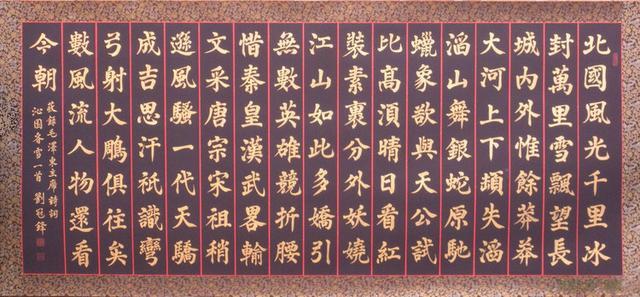 北國風光千里冰
封萬里雪飄望長
城內外惟餘莽莽
大河上下頓失滔
滔山舞銀蛇原馳
蠟象欲與天公試
比高湏晴日看紅
裝素裹分外妖嬈
江山如此多嬌引
無數英雄競折腰
惜秦皇漢武畧輸
文采唐宗宋祖稍
遜風騷一代天驕
成吉思汗祇識彎
弓射大鵰俱往矣
數風流人物還看
今朝
敬錄毛澤東主席詩詞
沁園春雪一首 劉冠鋒